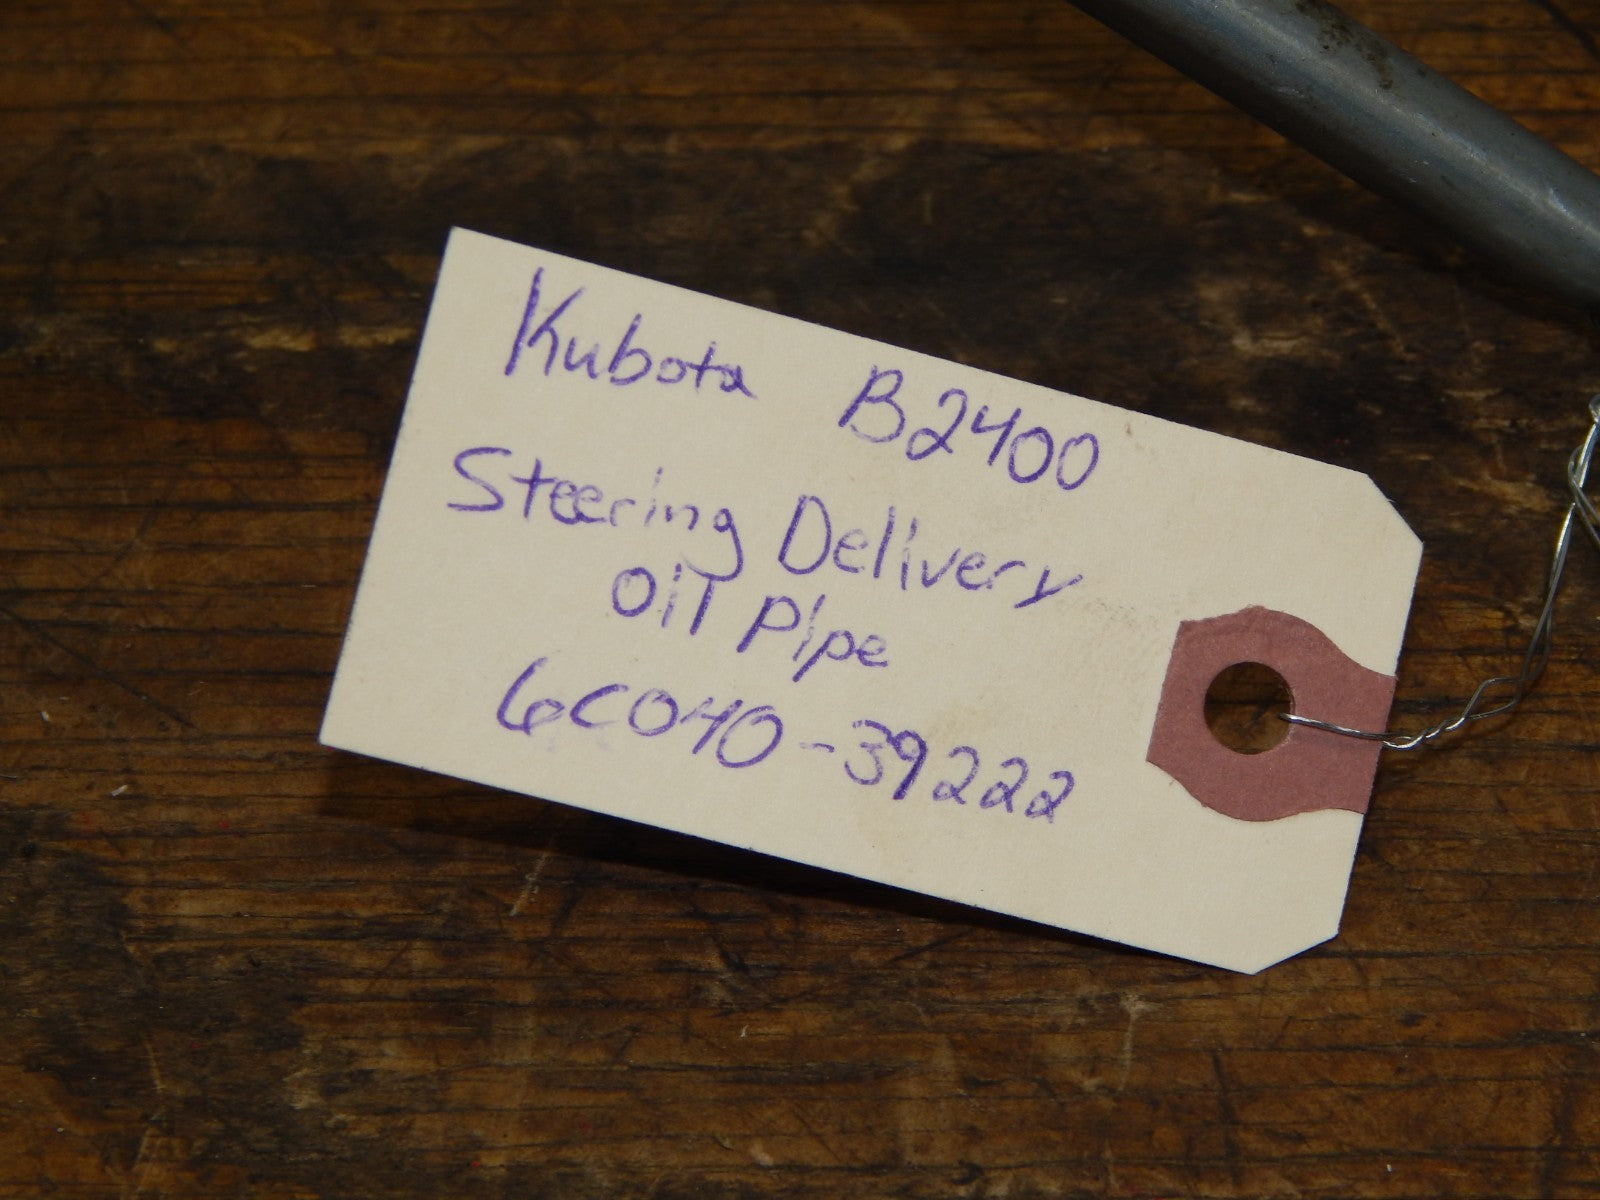 Kubota B2400
Steering Delivery
Oil Pipe
6C040-39222